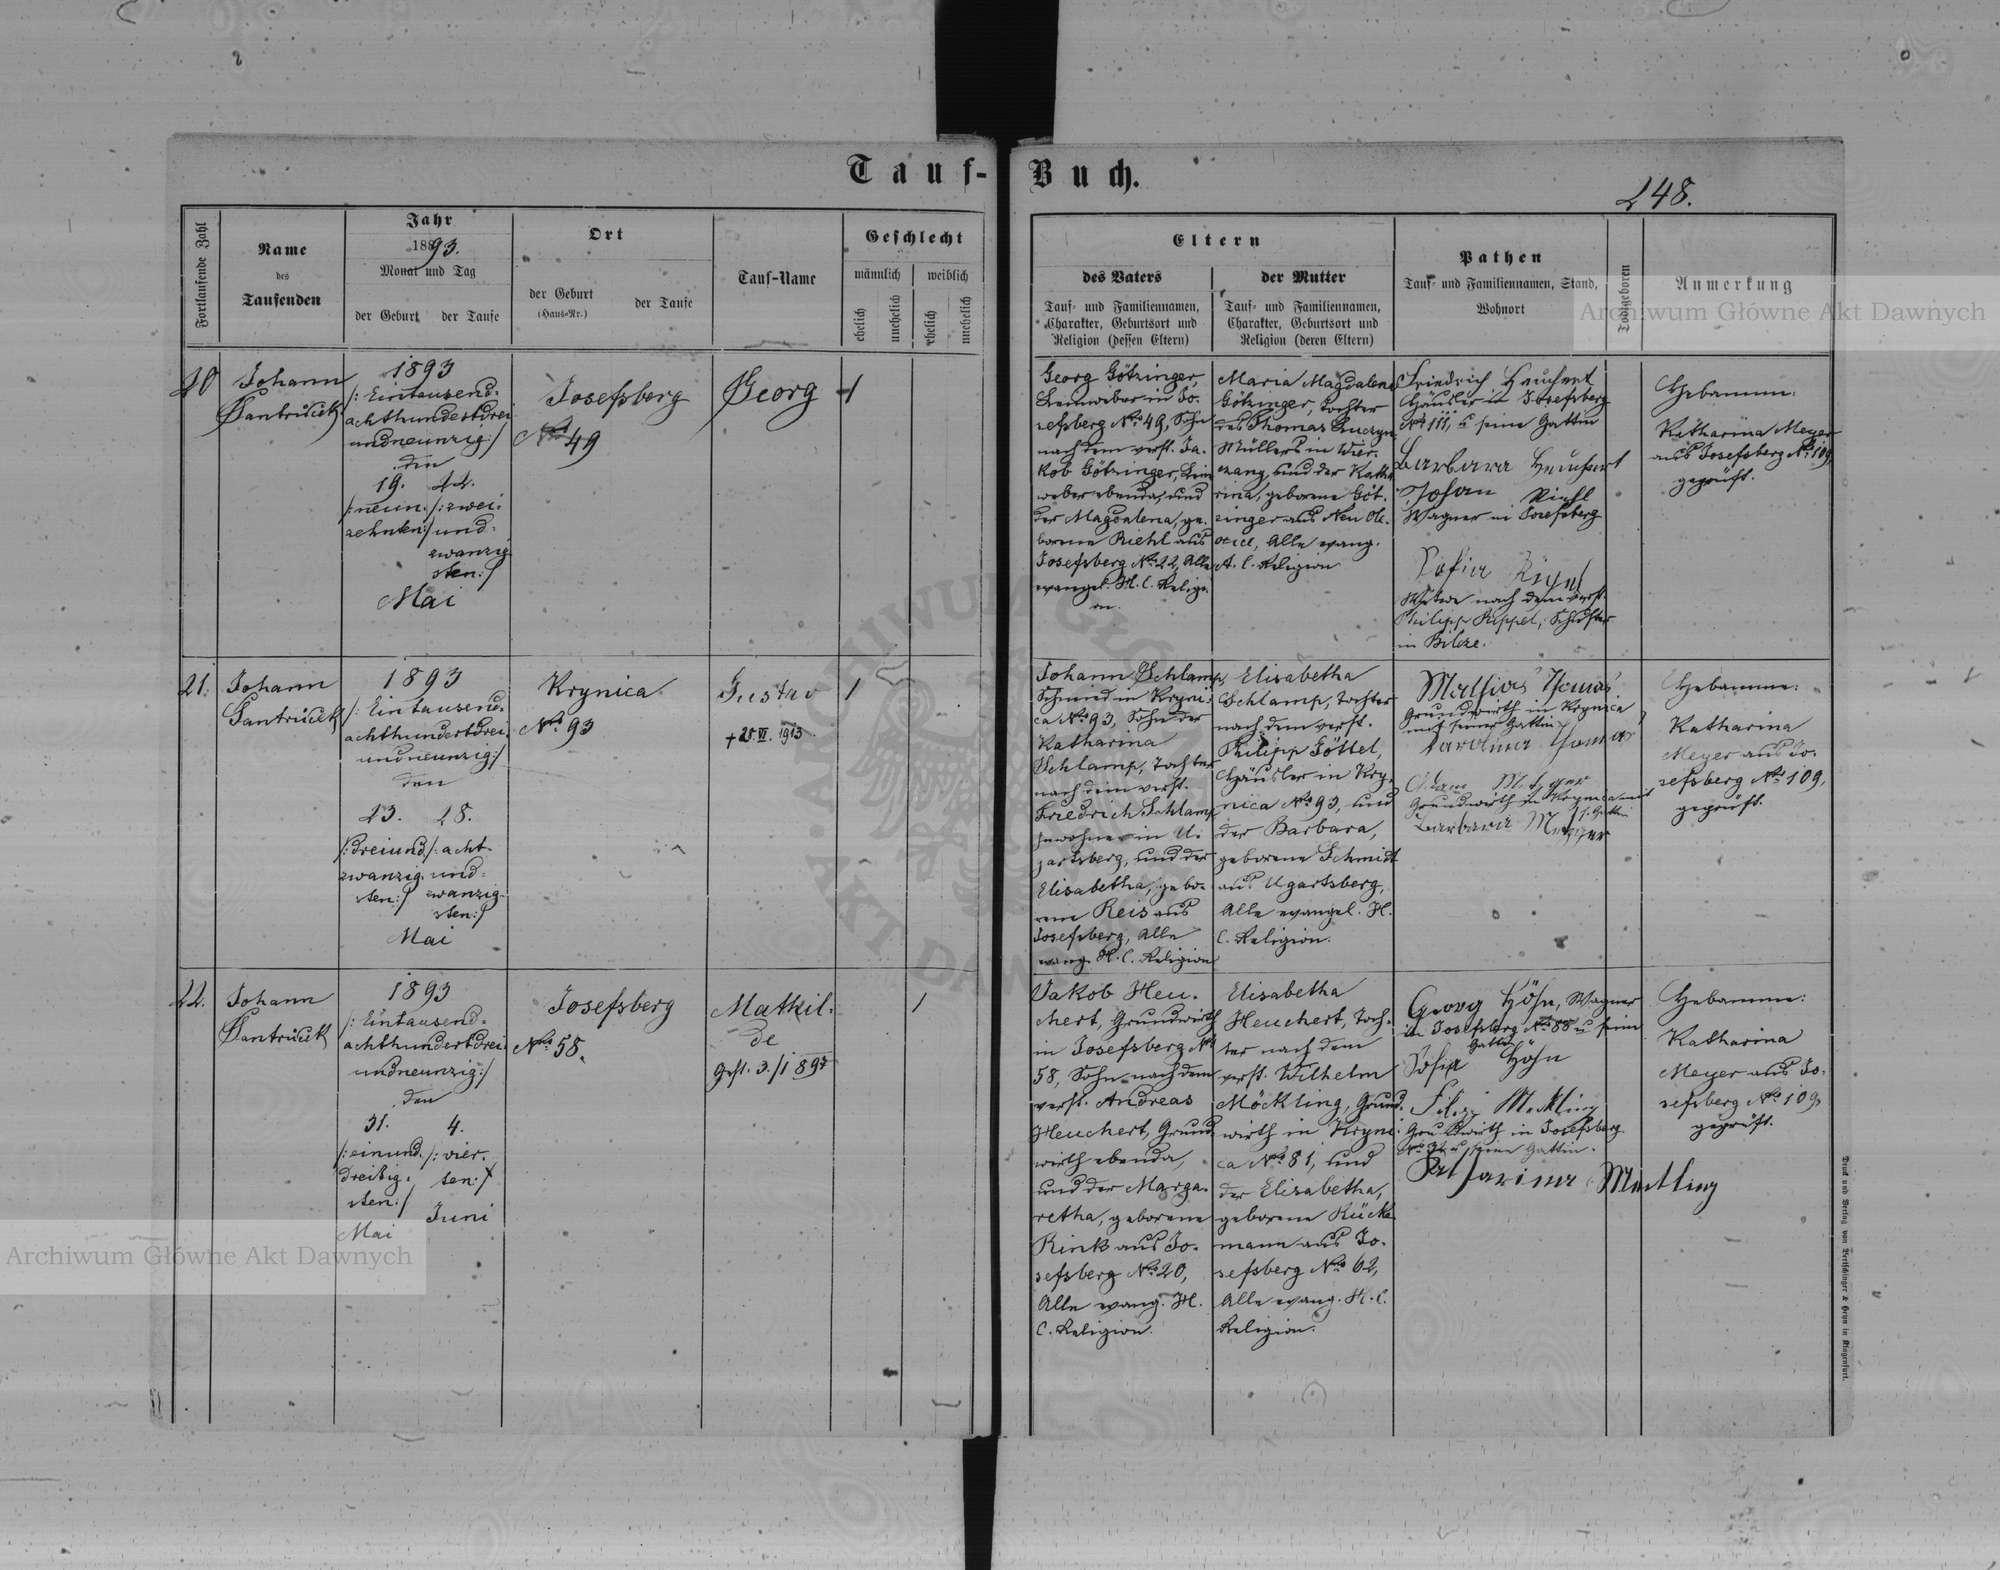 Tauf-
Buch.
248.
Fortlaufende Zahl
Name
des
Taufenden
Jahr
1893.
Monat und Tag
der Geburt
der Taufe
Ort
der Geburt
(Haus-Nr.)
der Taufe
Tauf-Name
Geschlecht
männlich
weiblich
ehelich
unehelich
ehelich
unehelich
Eltern
des Vaters
Tauf- und Familiennamen,
Charakter, Geburtsort und
Religion (dessen Eltern)
der Mutter
Tauf- und Familiennamen,
Charakter, Geburtsort und
Religion (deren Eltern)
Pathen
Tauf- und Familiennamen, Stand,
Wohnort
Todtgeboren
Anmerkung
Archiwum Główne Akt Dawnych
20
Johann
1893
/: Eintausend-
achthundertdrei
undneunzig:/
den
19. 22.
/:neun- /: zwei-
zehnten:/ und-
zwanzig
sten:/
Mai
Josefsberg
No 49
Georg
1
Georg Götzinger,
Leinweber in Jo-
sefsberg No 49, Sohn
nach dem verst. Ja-
kob Götzinger, Lein
weber ebenda, und
der Magdalena, ge-
borene Riehl aus
Josefsberg No 22, Alle
evangel. H. C. Religi-
on.
Maria Magdalena
Götzinger, Tochter
des Thomas
Müllers in Wier-
zang, und der Katha
rina, geborene Göt-
zinger aus Neu Ole-
xice, Alle evang.
A. C. Religion
Friedrich Heuchert
Häusler in Josefsberg
No 111, u seine Gattin
Barbara Heuchert
Johan Riehl
Wagner in Josefsberg
Sofia
Witwe nach dem verst.
Philipp Rippel, Schuster
in Bilcze.
Hebamme:
Katharina Meyer
aus Josefsberg No 109,
geprüft.
21.
Johann
1893
/: Eintausend-
achthundertdrei-
undneunzig:/
den
23. 28.
/:dreiund /: acht-
zwanzig und-
sten:/ zwanzig-
sten:/
Mai
Krynica
No 93
Gustav
+ 25. VI. 1913
1
Johann Schlamp,
Schmied in Kryni-
ca No 93, Sohn der
Katharina
Schlamp, Tochter
nach dem verst.
Friedrich Schlamp
Inwohner in U-
gartsberg, und der
Elisabetha, gebo-
rene Reis aus
Josefsberg, Alle
evang. H. C. Religion
Elisabetha
Schlamp, Tochter
nach dem verst.
Philipp Göttel,
Häusler in Kry-
nica No 93, und
der Barbara,
geborene Schmidt
aus Ugartsberg,
Alle evangel. H.
C. Religion.
Mathias Thomas
Grundwirth in Krynica
mit seiner Gattin
Karolina Thomas
Adam Metzger
Grundwirth in Krynica mit
s. Gattin
Barbara Metzger
Hebamme:
Katharina
Meyer aus Jo-
sefsberg No 109,
geprüft.
22.
Johann
1893
/: Eintausend-
achthundertdrei
undneunzig:/
den
31. 4.
/:einund- /: vier-
dreißig- ten:/
sten:/
Mai Juni
Josefsberg
No 58.
Mathil-
de
Gest. 3./I 1897
1
Jakob Heu-
chert, Grundwirth
in Josefsberg No
58, Sohn nach dem
verst. Andreas
Heuchert, Grund
wirth ebenda,
und der Marga-
retha, geborene
Rink aus Jo-
sefsberg No 20,
Alle evang. H.
C. Religion.
Elisabetha
Heuchert, Toch-
ter nach dem
verst. Wilhelm
Möckling, Grund-
wirth in Kryni-
ca No 81, und
der Elisabetha,
geborene Rücke
mann aus Jo-
sefsberg No 62,
Alle evang. H. C.
Religion.
Georg Höhn, Wagner
in Josefsberg No 88 u seine
Gattin
Sofia Höhn
Filipp Mekling
Grundwirth in Josefsberg
u seine Gattin
Katharina Mekling
Hebamme:
Katharina
Meyer aus Jo-
sefsberg No 109,
geprüft.
Archiwum Główne Akt Dawnych
Druck und Verlag von Bertschinger & Heyn in Klagenfurt.